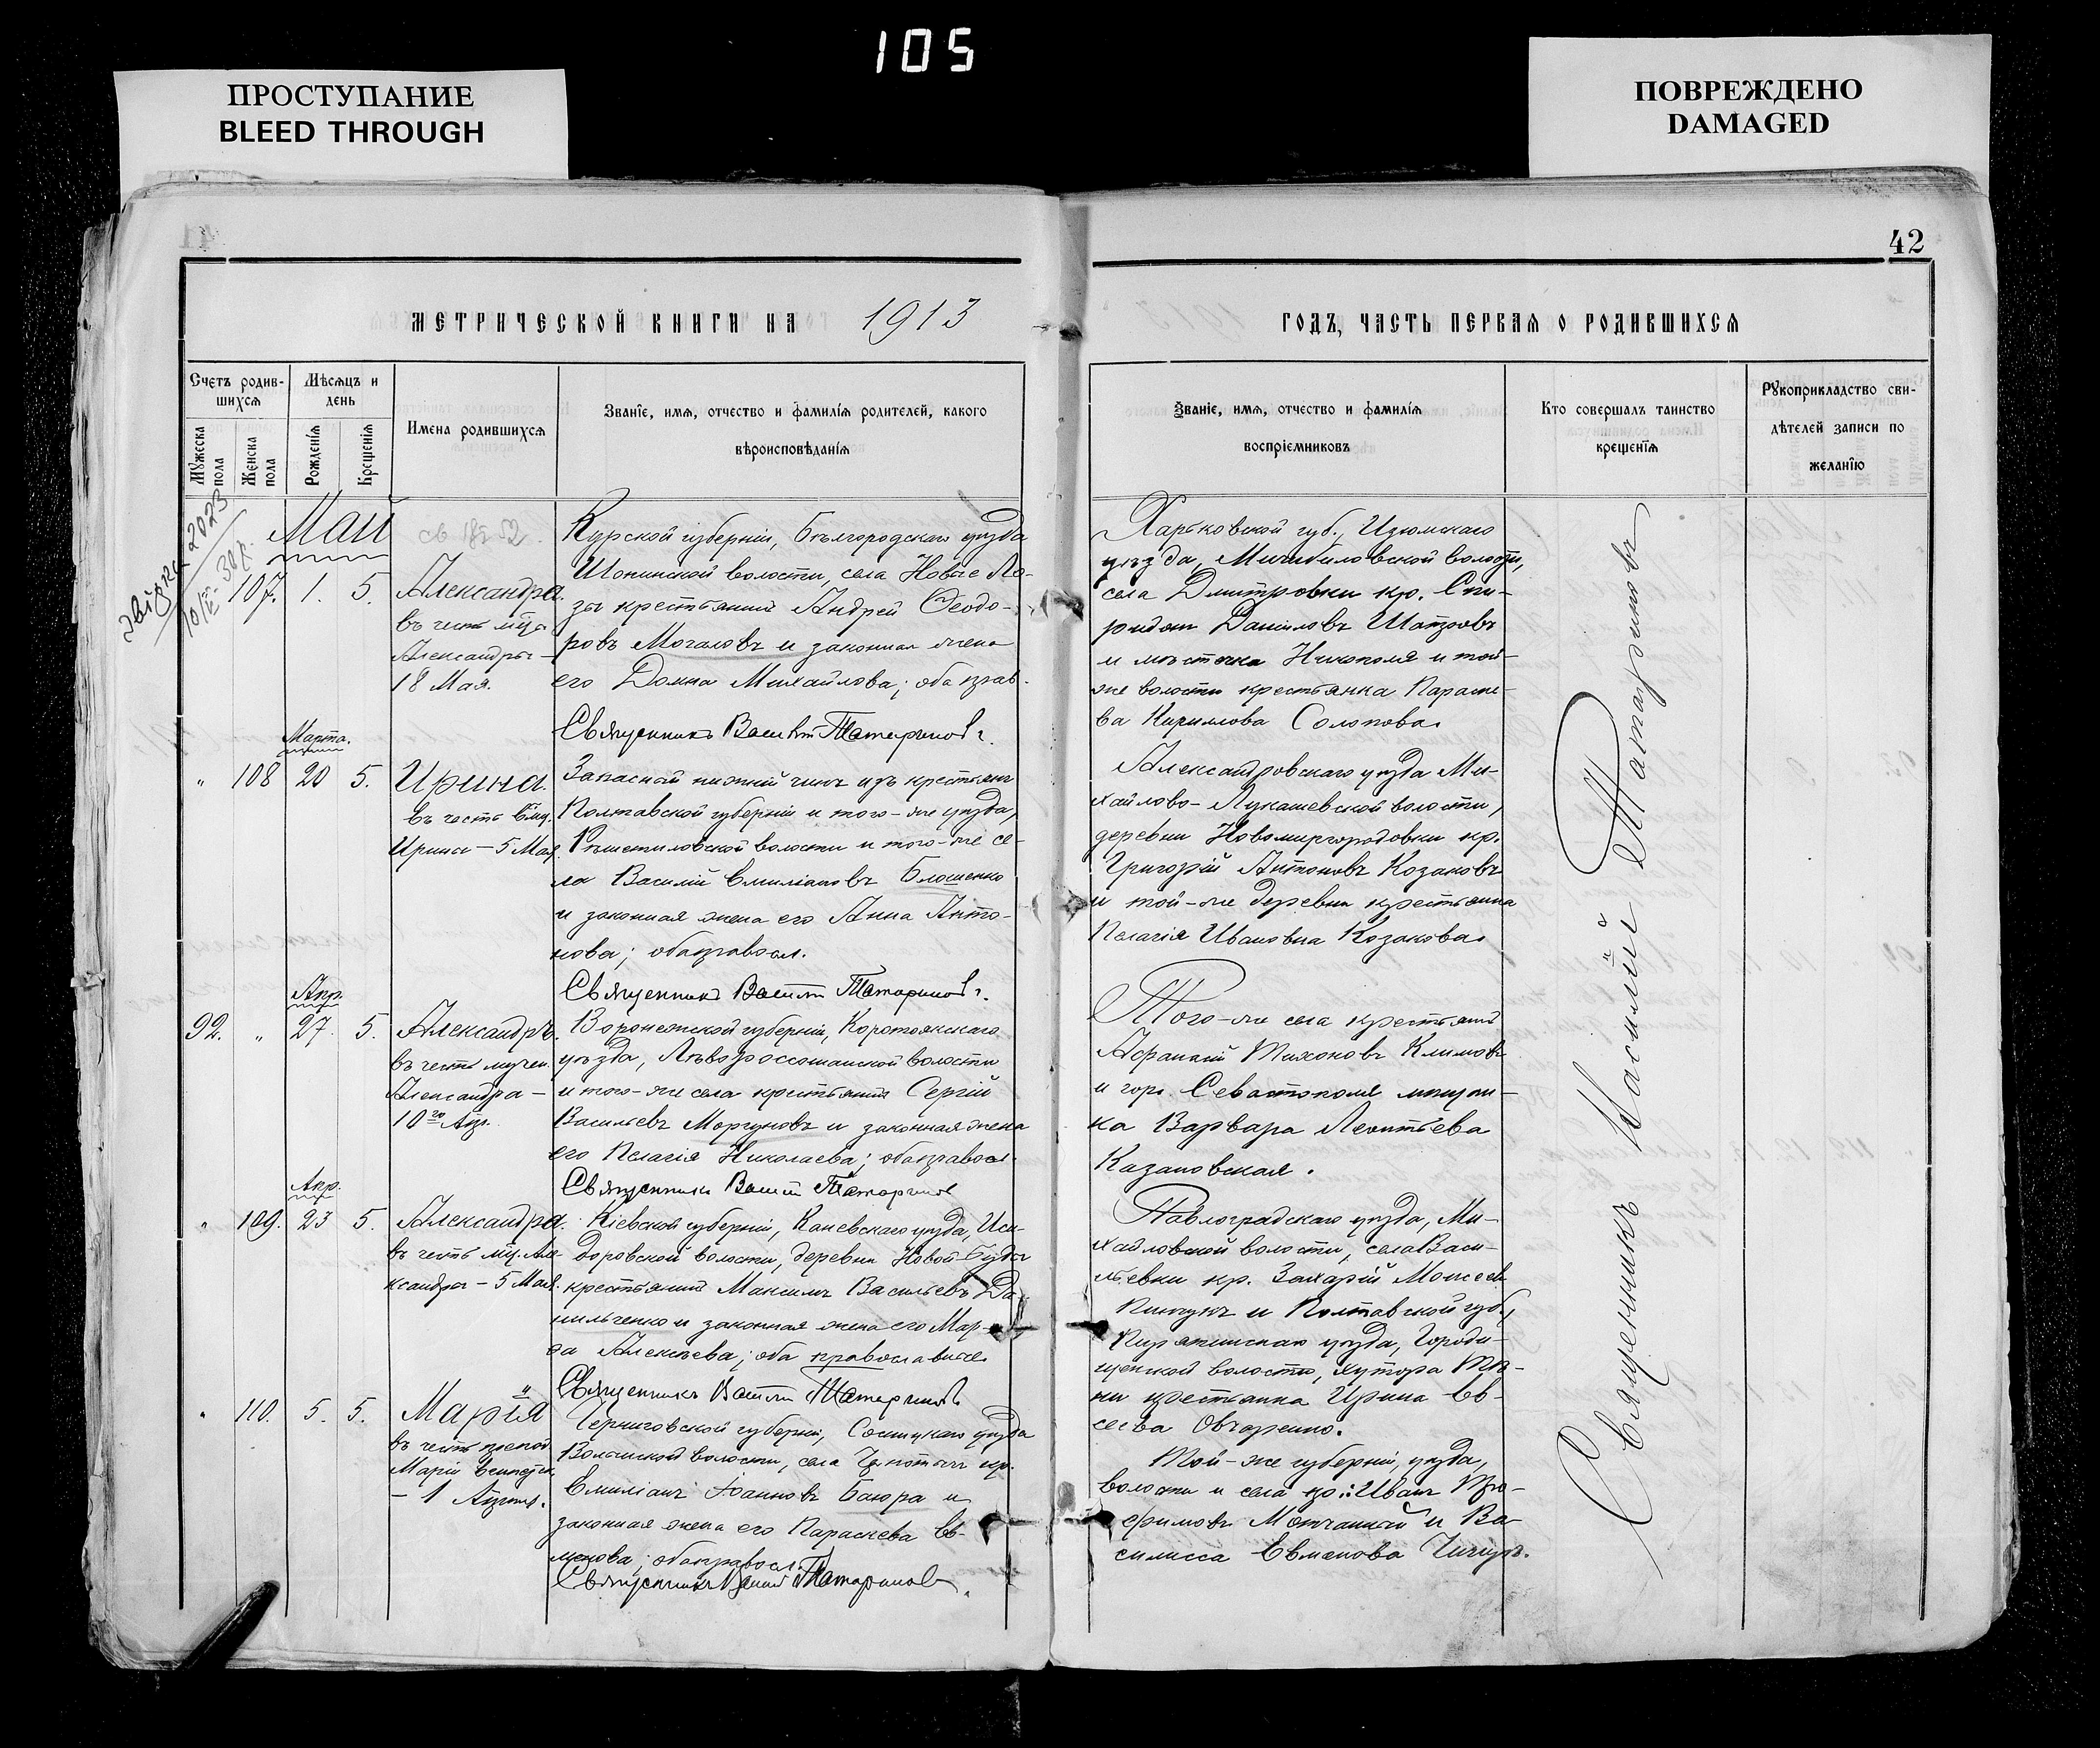 105
ПРОСТУПАНИЕ
BLEED THROUGH
ПОВРЕЖДЕНО
DAMAGED
42
МЕТРИЧЕСКОЙ КНИГИ НА 1913
ГОДЪ, ЧАСТЬ ПЕРВАЯ О РОДИВШИХСЯ
Счетъ родив-
шихся
Мужеска пола
Женска пола
Мѣсяцъ и
день
Рожденїя
Крещенїя
Имена родившихся
Званїе, имя, отчество и фамилїя родителей, какого
вѣроисповѣданїя
Званїе, имя, отчество и фамилїя
воспрїемниковъ
Кто совершалъ таинство
крещенїя
Рукоприкладство сви-
дѣтелей записи по
желанїю
Май
107. 1. 5.
Александра.
въ честь мц̃а
Александры –
18 Мая.
Курской губерніи, Бѣлгородскаго уѣзда
Шопинской волости, села Новые Ло-
зы крестьянинъ Андрей Ѳеодо-
ровъ Мочаловъ и законная жена
его Домна Михайлова; оба прав.
Священникъ Василій Татариновъ.
Харьковской губ., Изюмскаго
уѣзда, волости,
села Дмитровки кр. Спи-
ридонъ Даніиловъ
и мѣстечка Никополя и той-
же волости крестьянка Параске-
ва Кириллова Солопова.
Марта.
" 108 20 5.
Ирина.
въ честь вмц.
Ирины – 5 Мая.
Запасный нижній чинъ изъ крестьянъ
Полтавской губерніи и того-же уѣзда,
Рѣшетиловской волости и того-же се-
ла Василій Емиліановъ Блошенко
и законная жена его Анна Анто-
нова; оба правосл.
Священникъ Василій Татариновъ.
Александровскаго уѣзда Ми-
хайлово-Лукашевской волости,
деревни Новомиргородовки кр.
Григорій Антоновъ Козаковъ
и той-же деревни крестьянка
Пелагія Ивановна Козакова.
Апр.
92. " 27. 5.
Александръ.
въ честь мучен.
Александра –
10го Апр.
Воронежской губерніи, Коротоякскаго
уѣзда, Лѣвороссошанской волости
и того-же села крестьянинъ Сергій
Васильевъ Моргуновъ и законная жена
его Пелагія Николаева; оба правосл.
Священникъ Василій Татариновъ
Того-же села крестьянинъ
Тихоновъ Климовъ
и гор. Севастополя мѣщан-
ка Варвара Леонтьева
Казановская.
Апр.
" 109. 23 5.
Александра.
въ честь мц. Але-
ксандры – 5 Мая.
Кіевской губерніи, Каневскаго уѣзда, Иси-
доровской волости, деревни Новой-Буды
крестьянинъ Максимъ Васильевъ Да-
нильченко и законная жена его Мар-
ѳа Алексѣева; оба православные
Священникъ Василій Татариновъ
Павлоградскаго уѣзда, Ми-
хайловской волости, села Васи-
льевки кр. Захарій Моисеевъ
Пинчукъ и Полтавской губ.,
уѣзда, Городи-
щенской волости, хутора
крестьянка Ирина Ев-
сеева Овчаренко.
" 110. 5. 5.
Марія
въ честь препод.
Маріи Египетск.
– 1 Апрѣля.
Черниговской губерніи, Сосницкаго уѣзда
волости, села кр.
Емиліанъ Іоанновъ Баюра и
законная жена его Параскева Ев-
менова; оба правосл.
Священникъ Василій Татариновъ
Той-же губерніи, уѣзда,
волости и села кр.: Иванъ Тро-
фимовъ Молчанъ и Ва-
силисса Евменова
Священникъ Василій Татариновъ